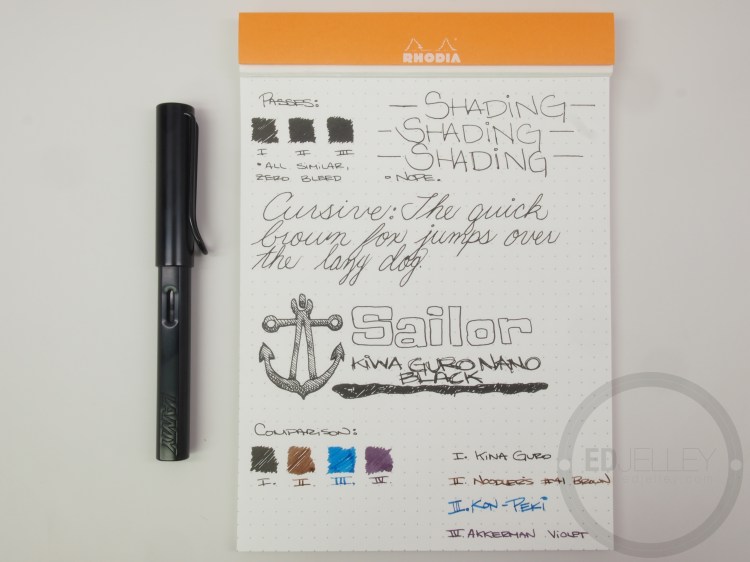 RHODIA
PASSES:
I II III
• ALL SIMILAR,
ZERO BLEED
— SHADING —
— SHADING —
— SHADING —
• NOPE.
Cursive: The quick
brown fox jumps over
the lazy dog.
Sailor
KIWA GURO NANO
BLACK
COMPARISON:
I. II. III. IV
I. KINA GURO
II. NOODLER'S #41 BROWN
III. KON-PEKI
IV. AKKERMAN VIOLET
LAMY
EDJELLEY